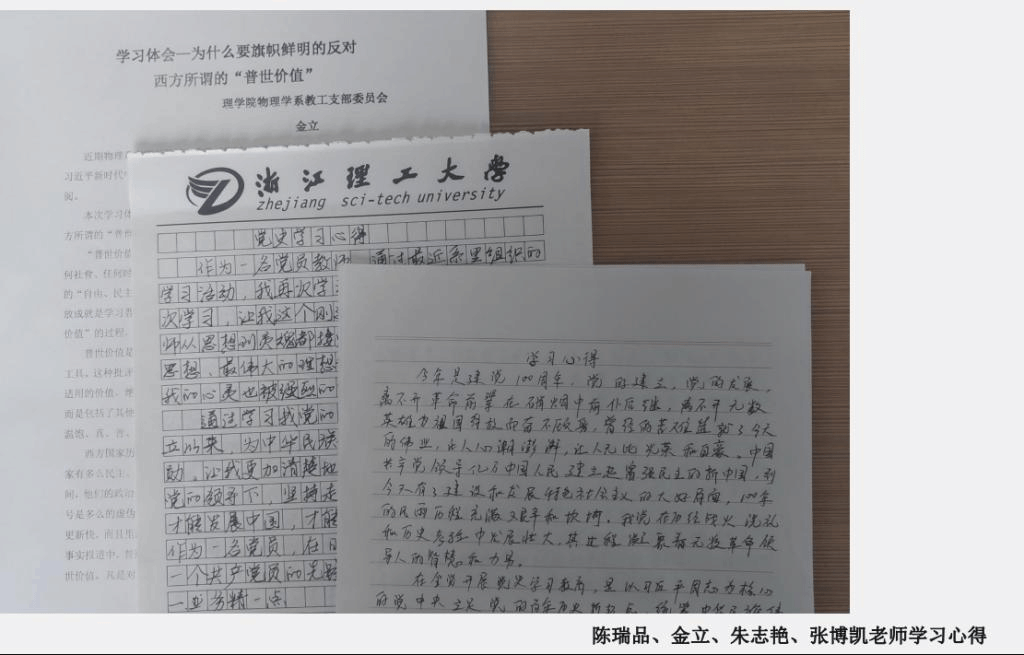 学习体会—为什么要旗帜鲜明的反对
西方所谓的“普世价值”
理学院物理学系教工支部委员会
金立
近期物理
习近平新时代
阅。
本次学习体
方所谓的“普世
“普世价值
何社会、任何时
的“自由、民主
放成就是学习
价值”的过程。
普世价值是
工具，这种批评
适用的价值。
而是包括了其他
温饱、真、善、
西方国家历
家有多么民主、
间，他们的政治
号是多么的虚
更新快，而且
事实报道中，
世价值。凡是对
浙江理工大学
zhejiang sci-tech university
党史学习心得
作为一名党员教师，通过最近系里组织的
学习活动，我再次学
次学习，让我这个刚
师从思想到灵魂都接
思想、最伟大的理想
我的心灵也被强烈的
通过学习我党的
立以来，为中华民族
励，让我更加清楚地
党的领导下，坚持走
才能发展中国，才能
作为一名党员，在日
一个共产党员的先
一业务精一点
学习心得
今年是建党100周年，党的建立，党的发展，
离不开革命前辈在硝烟中前仆后继，离不开无数
英雄为祖国奋战而奋不顾身，曾经的苦难造就了今天
的伟业，让人心潮澎湃，让人无比光荣和自豪。中国
共产党领导亿万中国人民建立起富强民主的新中国，到
今天有了建设和发展特色社会主义的大好局面，100年
的风雨历程充满艰辛和坎坷。我党在历经战火洗礼
和历史考验中发展壮大，其过程凝聚着无数革命领
导人的智慧和力量。
在全党开展党史学习教育，是以习近平同志为核心
的党中央立足党的百年历史新起点、统筹中华民族伟
陈瑞品、金立、朱志艳、张博凯老师学习心得